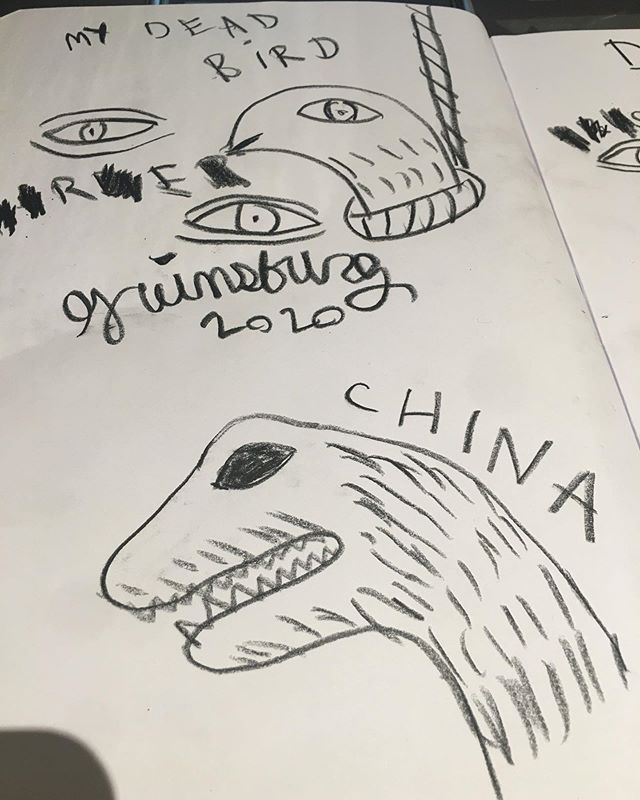 MY DEAD
BiRD
guinsburg
2020
CHINA